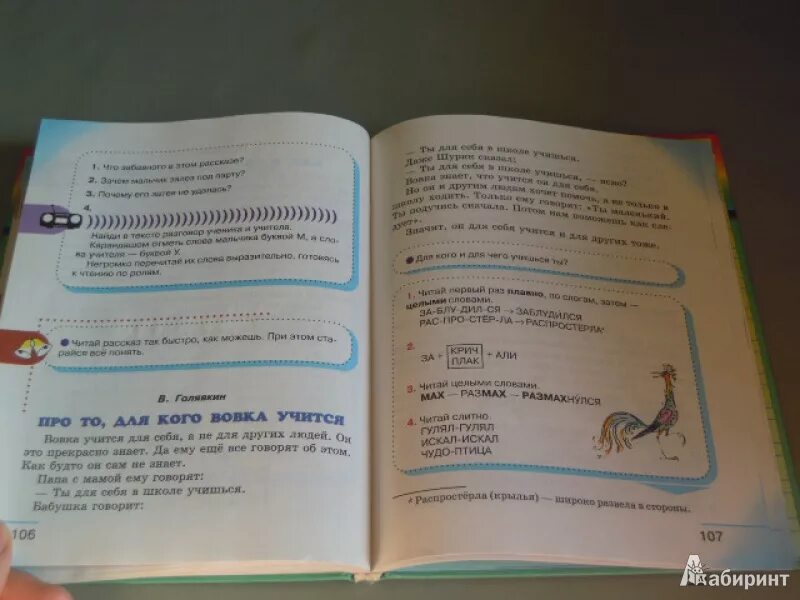 1. Что забавного в этом рассказе?
2. Зачем мальчик залез под парту?
3. Почему его затея не удалась?
4.
Найди в тексте разговор ученика и учителя.
Карандашом отметь слова мальчика буквой М, а сло-
ва учителя — буквой У.
Негромко перечитай их слова выразительно, готовясь
к чтению по ролям.
Читай рассказ так быстро, как можешь. При этом ста-
райся всё понять.
В. Голявкин
ПРО ТО, ДЛЯ КОГО ВОВКА УЧИТСЯ
Вовка учится для себя, а не для других людей. Он
это прекрасно знает. Да ему ещё все говорят об этом.
Как будто он сам не знает.
Папа с мамой ему говорят:
— Ты для себя в школе учишься.
Бабушка говорит:
106
— Ты для себя в школе учишься.
Даже Шурик сказал:
— Ты для себя в школе учишься, — ясно?
Вовка знает, что учится он для себя.
Но он и другим людям хочет помочь, а не только в
школу ходить. Только ему говорят: «Ты маленький.
Ты подучись сначала. Потом нам поможешь как сле-
дует».
Значит, он для себя учится и для других тоже.
Для кого и для чего учишься ты?
1. Читай первый раз плавно, по слогам, затем —
целыми словами.
ЗА-БЛУ-ДИЛ-СЯ → ЗАБЛУДИЛСЯ
РАС-ПРО-СТЁР-ЛА → РАСПРОСТЁРЛА*
2.
ЗА + КРИЧ ПЛАК + АЛИ
3. Читай целыми словами.
МАХ — РАЗМАХ — РАЗМАХНУЛСЯ
4. Читай слитно.
ГУЛЯЛ-ГУЛЯЛ
ИСКАЛ-ИСКАЛ
ЧУДО-ПТИЦА
* Распростёрла (крылья) — широко развела в стороны.
107
Лабиринт